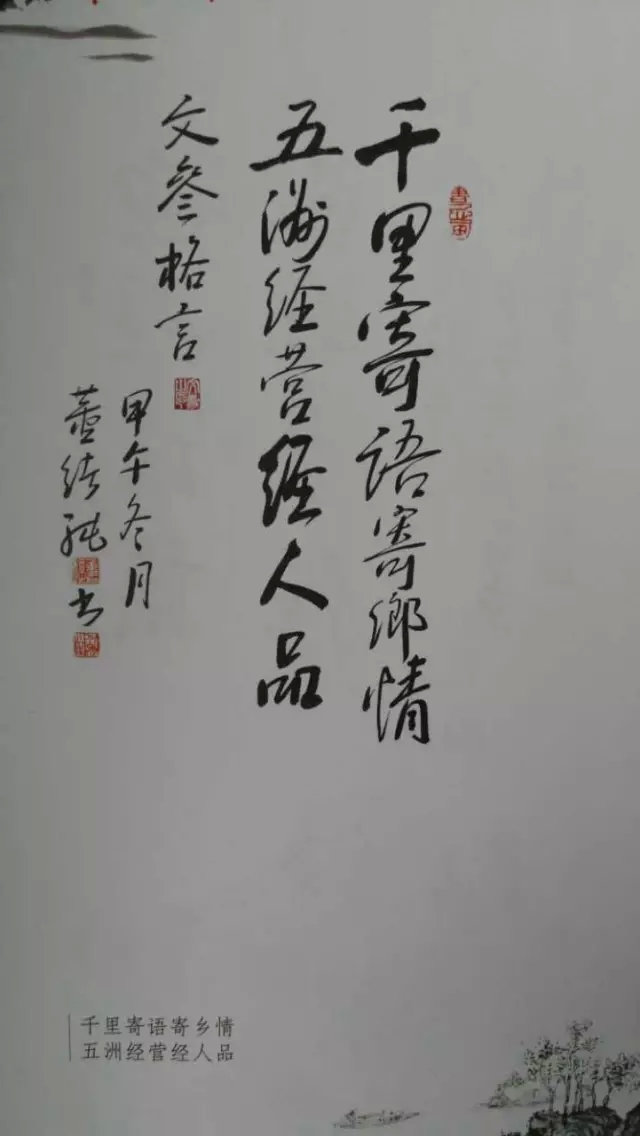 千里寄语寄鄉情
五洲经营经人品
文叁格言
甲午冬月
书
千里寄语寄乡情
五洲经营经人品